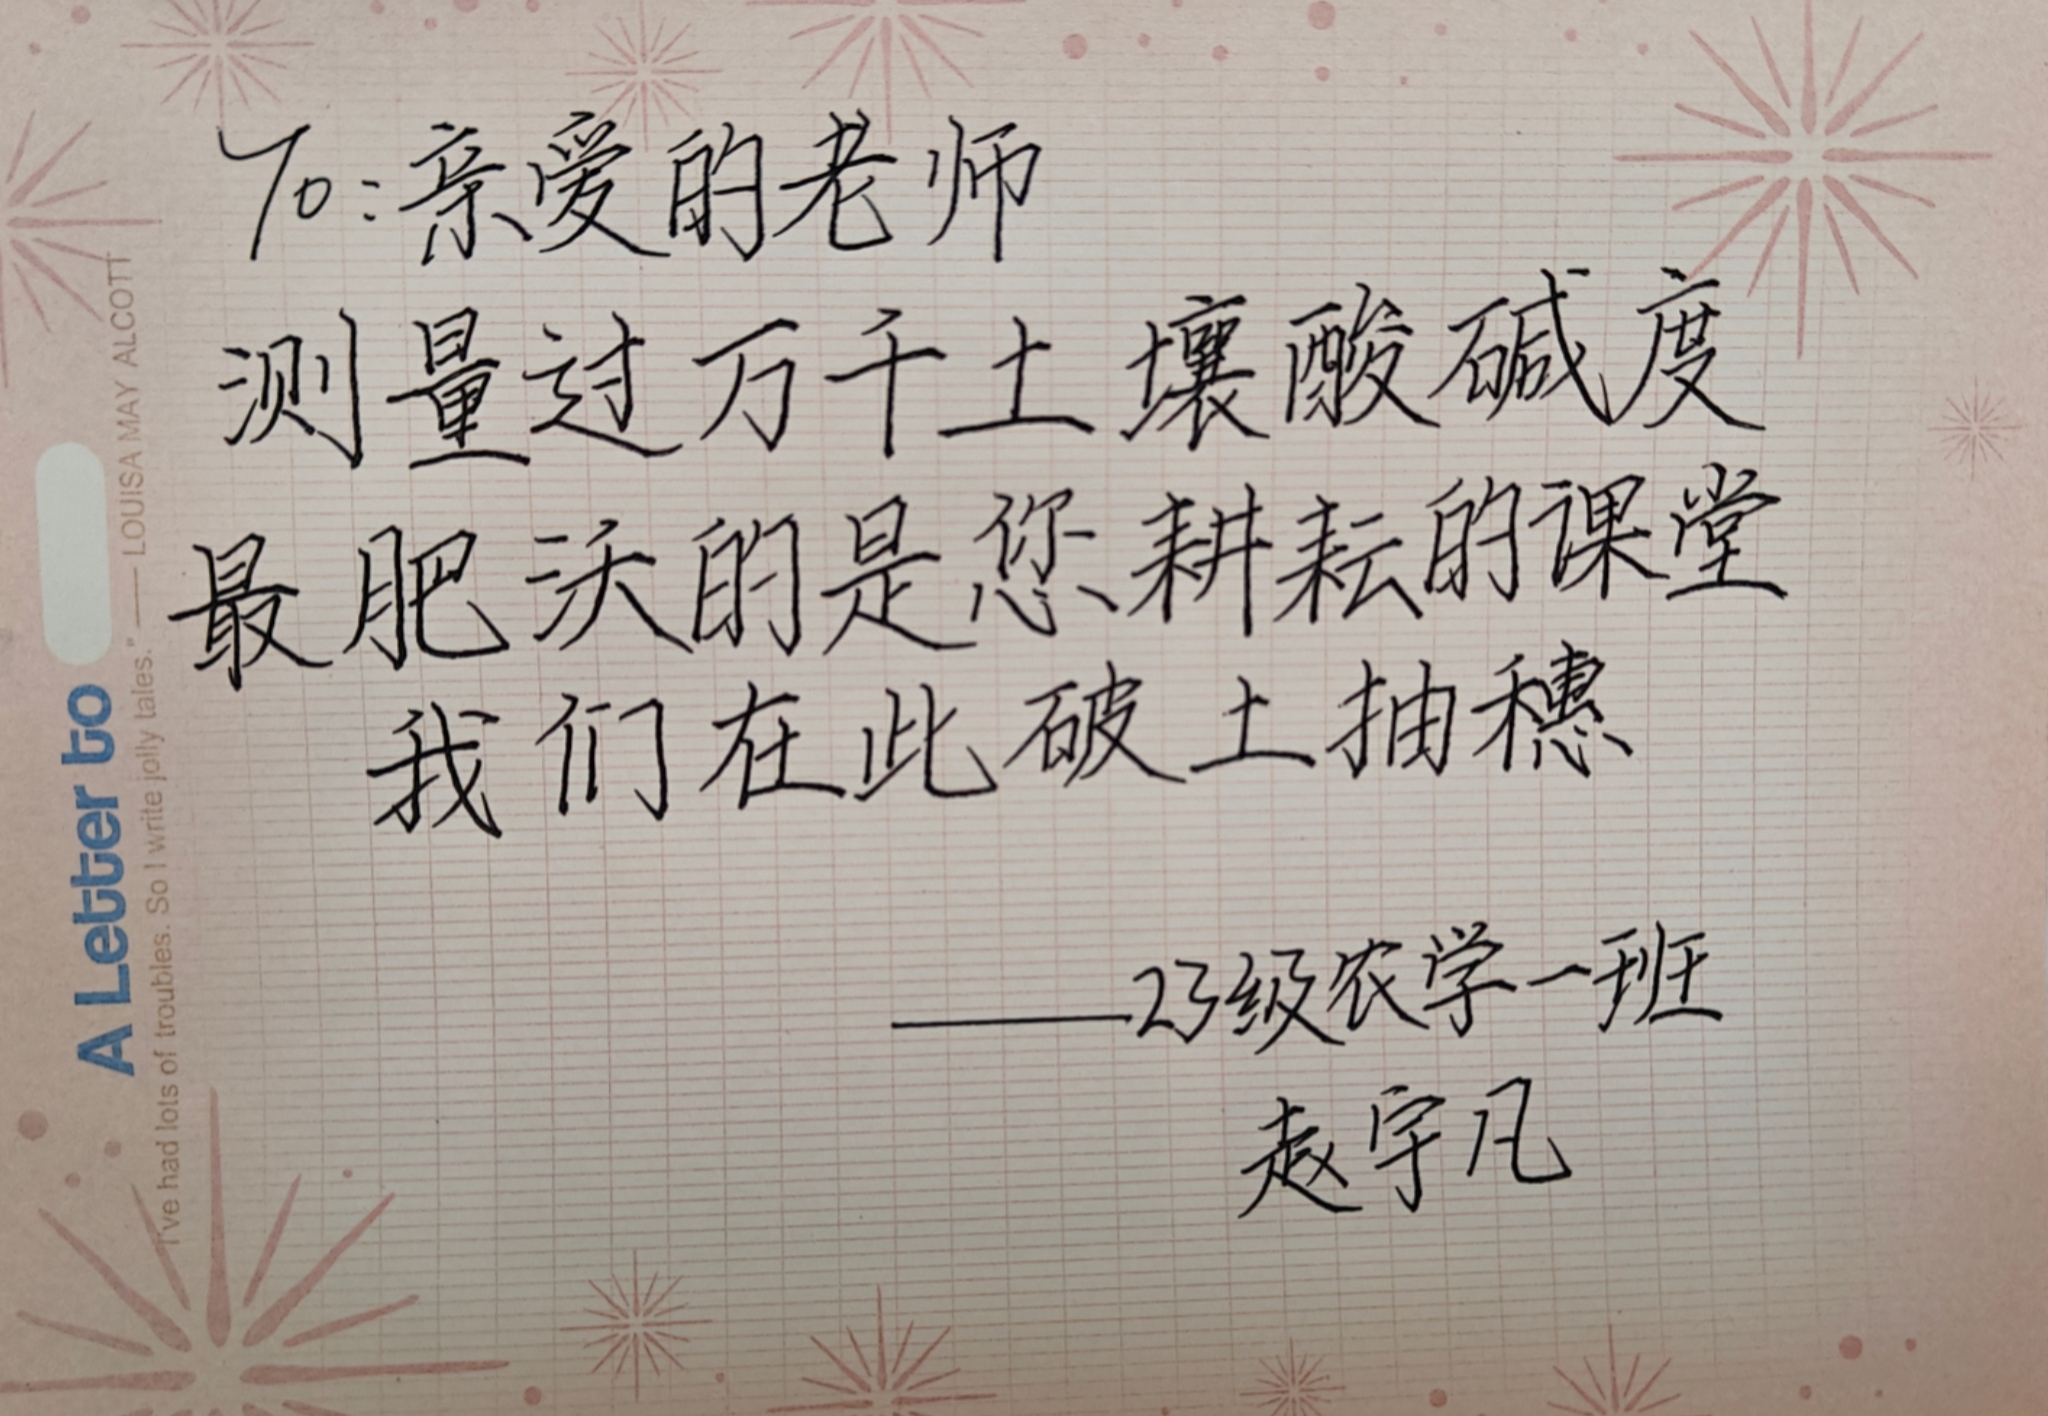 To:亲爱的老师
测量过万千土壤酸碱度
最肥沃的是您耕耘的课堂
我们在此破土抽穗
——23级农学一班
赵宇凡
A Letter to
I've had lots of troubles. So I write jolly tales." —— LOUISA MAY ALCOTT